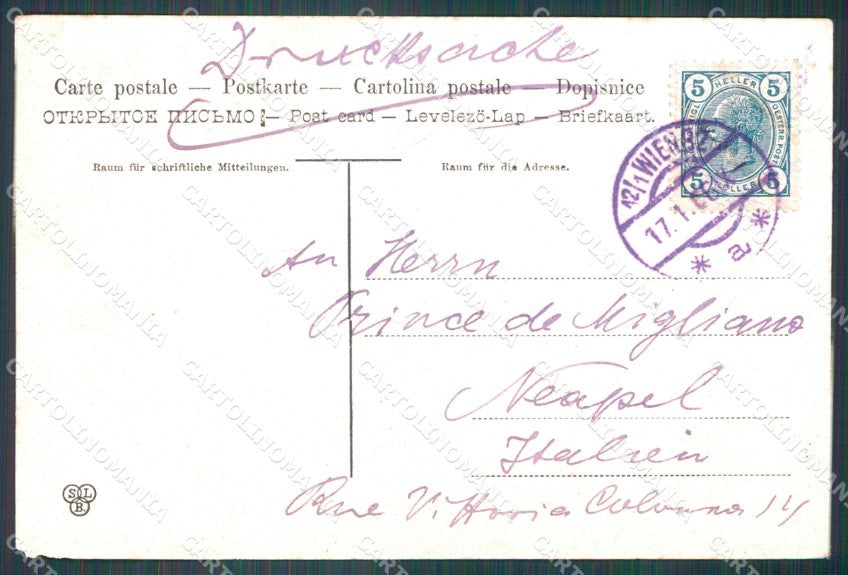 Drucksache
Carte postale — Postkarte — Cartolina postale — Dopisnice
ОТКРЫТОЕ ПИСЬМО — Post card — Levelezö-Lap — Briefkaart.
Raum für schriftliche Mitteilungen.
Raum für die Adresse.
5 HELLER 5
5 HELLER 5
12/1 WIEN
17.1.
* a *
An Herrn
Prince de Migliano
Neapel
Italien
Rue Vittoria Colonna 14
SL
B.
CARTOLINOMANIA